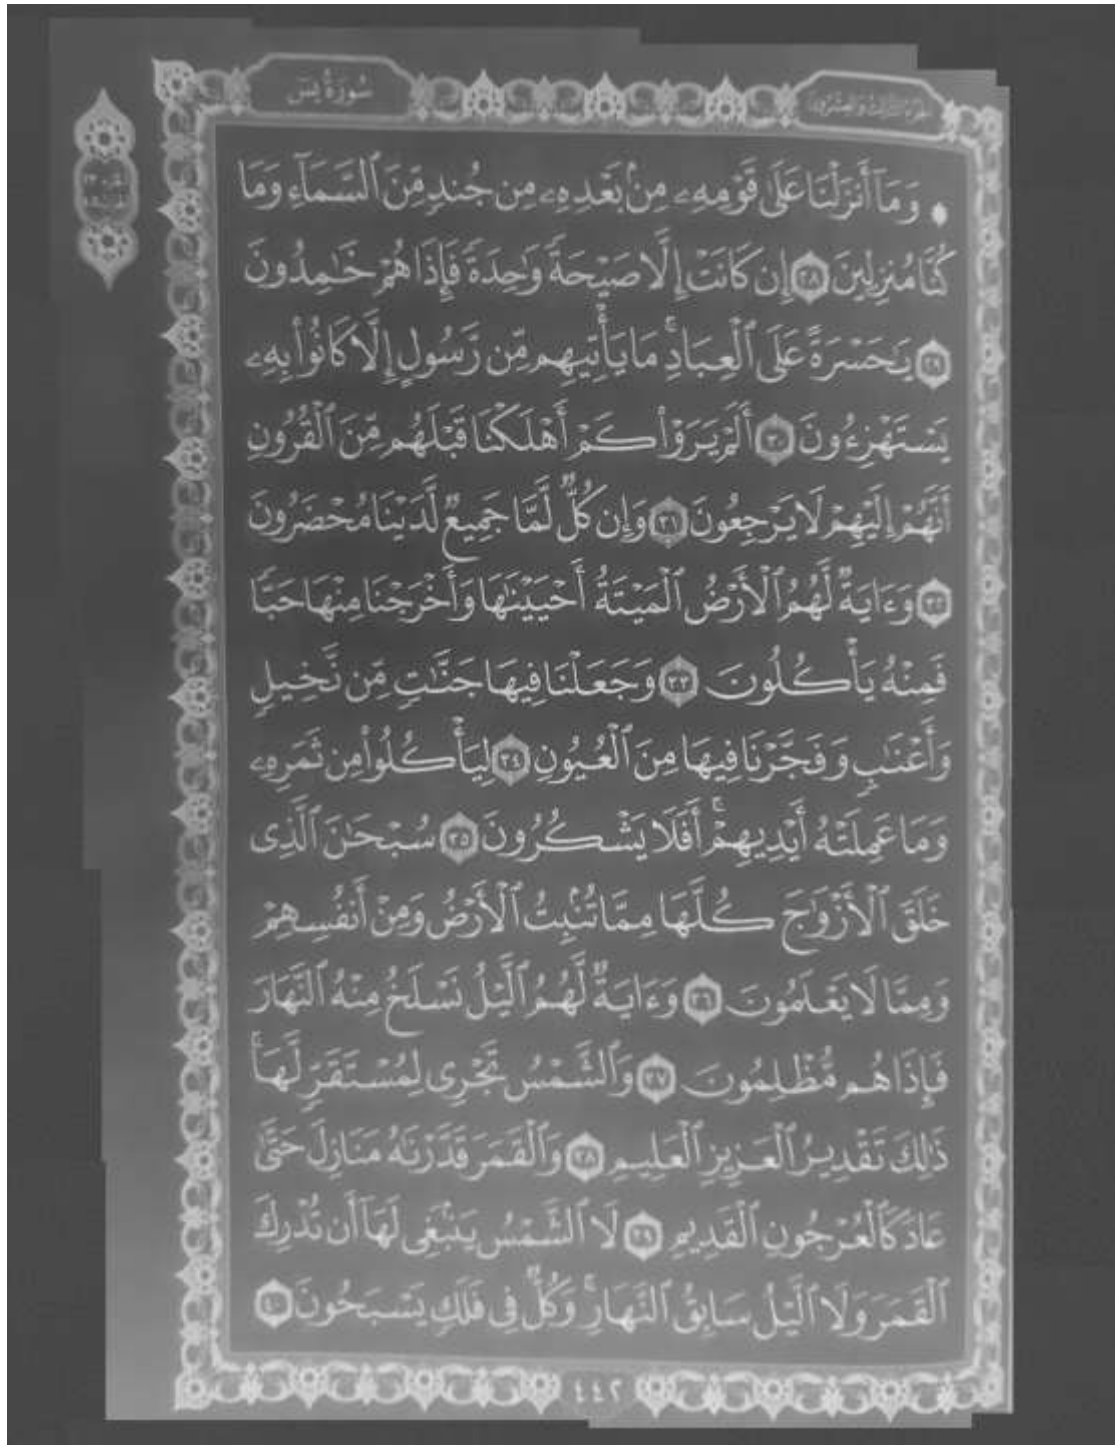 سُورَةُ يسٓ
الجزء الثالث والعشرون
وَمَآ أَنزَلْنَا عَلَىٰ قَوْمِهِۦ مِنۢ بَعْدِهِۦ مِن جُندٍ مِّنَ ٱلسَّمَآءِ وَمَا
كُنَّا مُنزِلِينَ ٢٨ إِن كَانَتْ إِلَّا صَيْحَةً وَٰحِدَةً فَإِذَا هُمْ خَٰمِدُونَ
٢٩ يَٰحَسْرَةً عَلَى ٱلْعِبَادِ ۚ مَا يَأْتِيهِم مِّن رَّسُولٍ إِلَّا كَانُوا۟ بِهِۦ
يَسْتَهْزِءُونَ ٣٠ أَلَمْ يَرَوْا۟ كَمْ أَهْلَكْنَا قَبْلَهُم مِّنَ ٱلْقُرُونِ
أَنَّهُمْ إِلَيْهِمْ لَا يَرْجِعُونَ ٣١ وَإِن كُلٌّ لَّمَّا جَمِيعٌ لَّدَيْنَا مُحْضَرُونَ
٣٢ وَءَايَةٌ لَّهُمُ ٱلْأَرْضُ ٱلْمَيْتَةُ أَحْيَيْنَٰهَا وَأَخْرَجْنَا مِنْهَا حَبًّا
فَمِنْهُ يَأْكُلُونَ ٣٣ وَجَعَلْنَا فِيهَا جَنَّٰتٍ مِّن نَّخِيلٍ
وَأَعْنَٰبٍ وَفَجَّرْنَا فِيهَا مِنَ ٱلْعُيُونِ ٣٤ لِيَأْكُلُوا۟ مِن ثَمَرِهِۦ
وَمَا عَمِلَتْهُ أَيْدِيهِمْ ۖ أَفَلَا يَشْكُرُونَ ٣٥ سُبْحَٰنَ ٱلَّذِى
خَلَقَ ٱلْأَزْوَٰجَ كُلَّهَا مِمَّا تُنۢبِتُ ٱلْأَرْضُ وَمِنْ أَنفُسِهِمْ
وَمِمَّا لَا يَعْلَمُونَ ٣٦ وَءَايَةٌ لَّهُمُ ٱلَّيْلُ نَسْلَخُ مِنْهُ ٱلنَّهَارَ
فَإِذَا هُم مُّظْلِمُونَ ٣٧ وَٱلشَّمْسُ تَجْرِى لِمُسْتَقَرٍّ لَّهَا ۚ
ذَٰلِكَ تَقْدِيرُ ٱلْعَزِيزِ ٱلْعَلِيمِ ٣٨ وَٱلْقَمَرَ قَدَّرْنَٰهُ مَنَازِلَ حَتَّىٰ
عَادَ كَٱلْعُرْجُونِ ٱلْقَدِيمِ ٣٩ لَا ٱلشَّمْسُ يَنۢبَغِى لَهَآ أَن تُدْرِكَ
ٱلْقَمَرَ وَلَا ٱلَّيْلُ سَابِقُ ٱلنَّهَارِ ۚ وَكُلٌّ فِى فَلَكٍ يَسْبَحُونَ ٤٠
٤٤٢